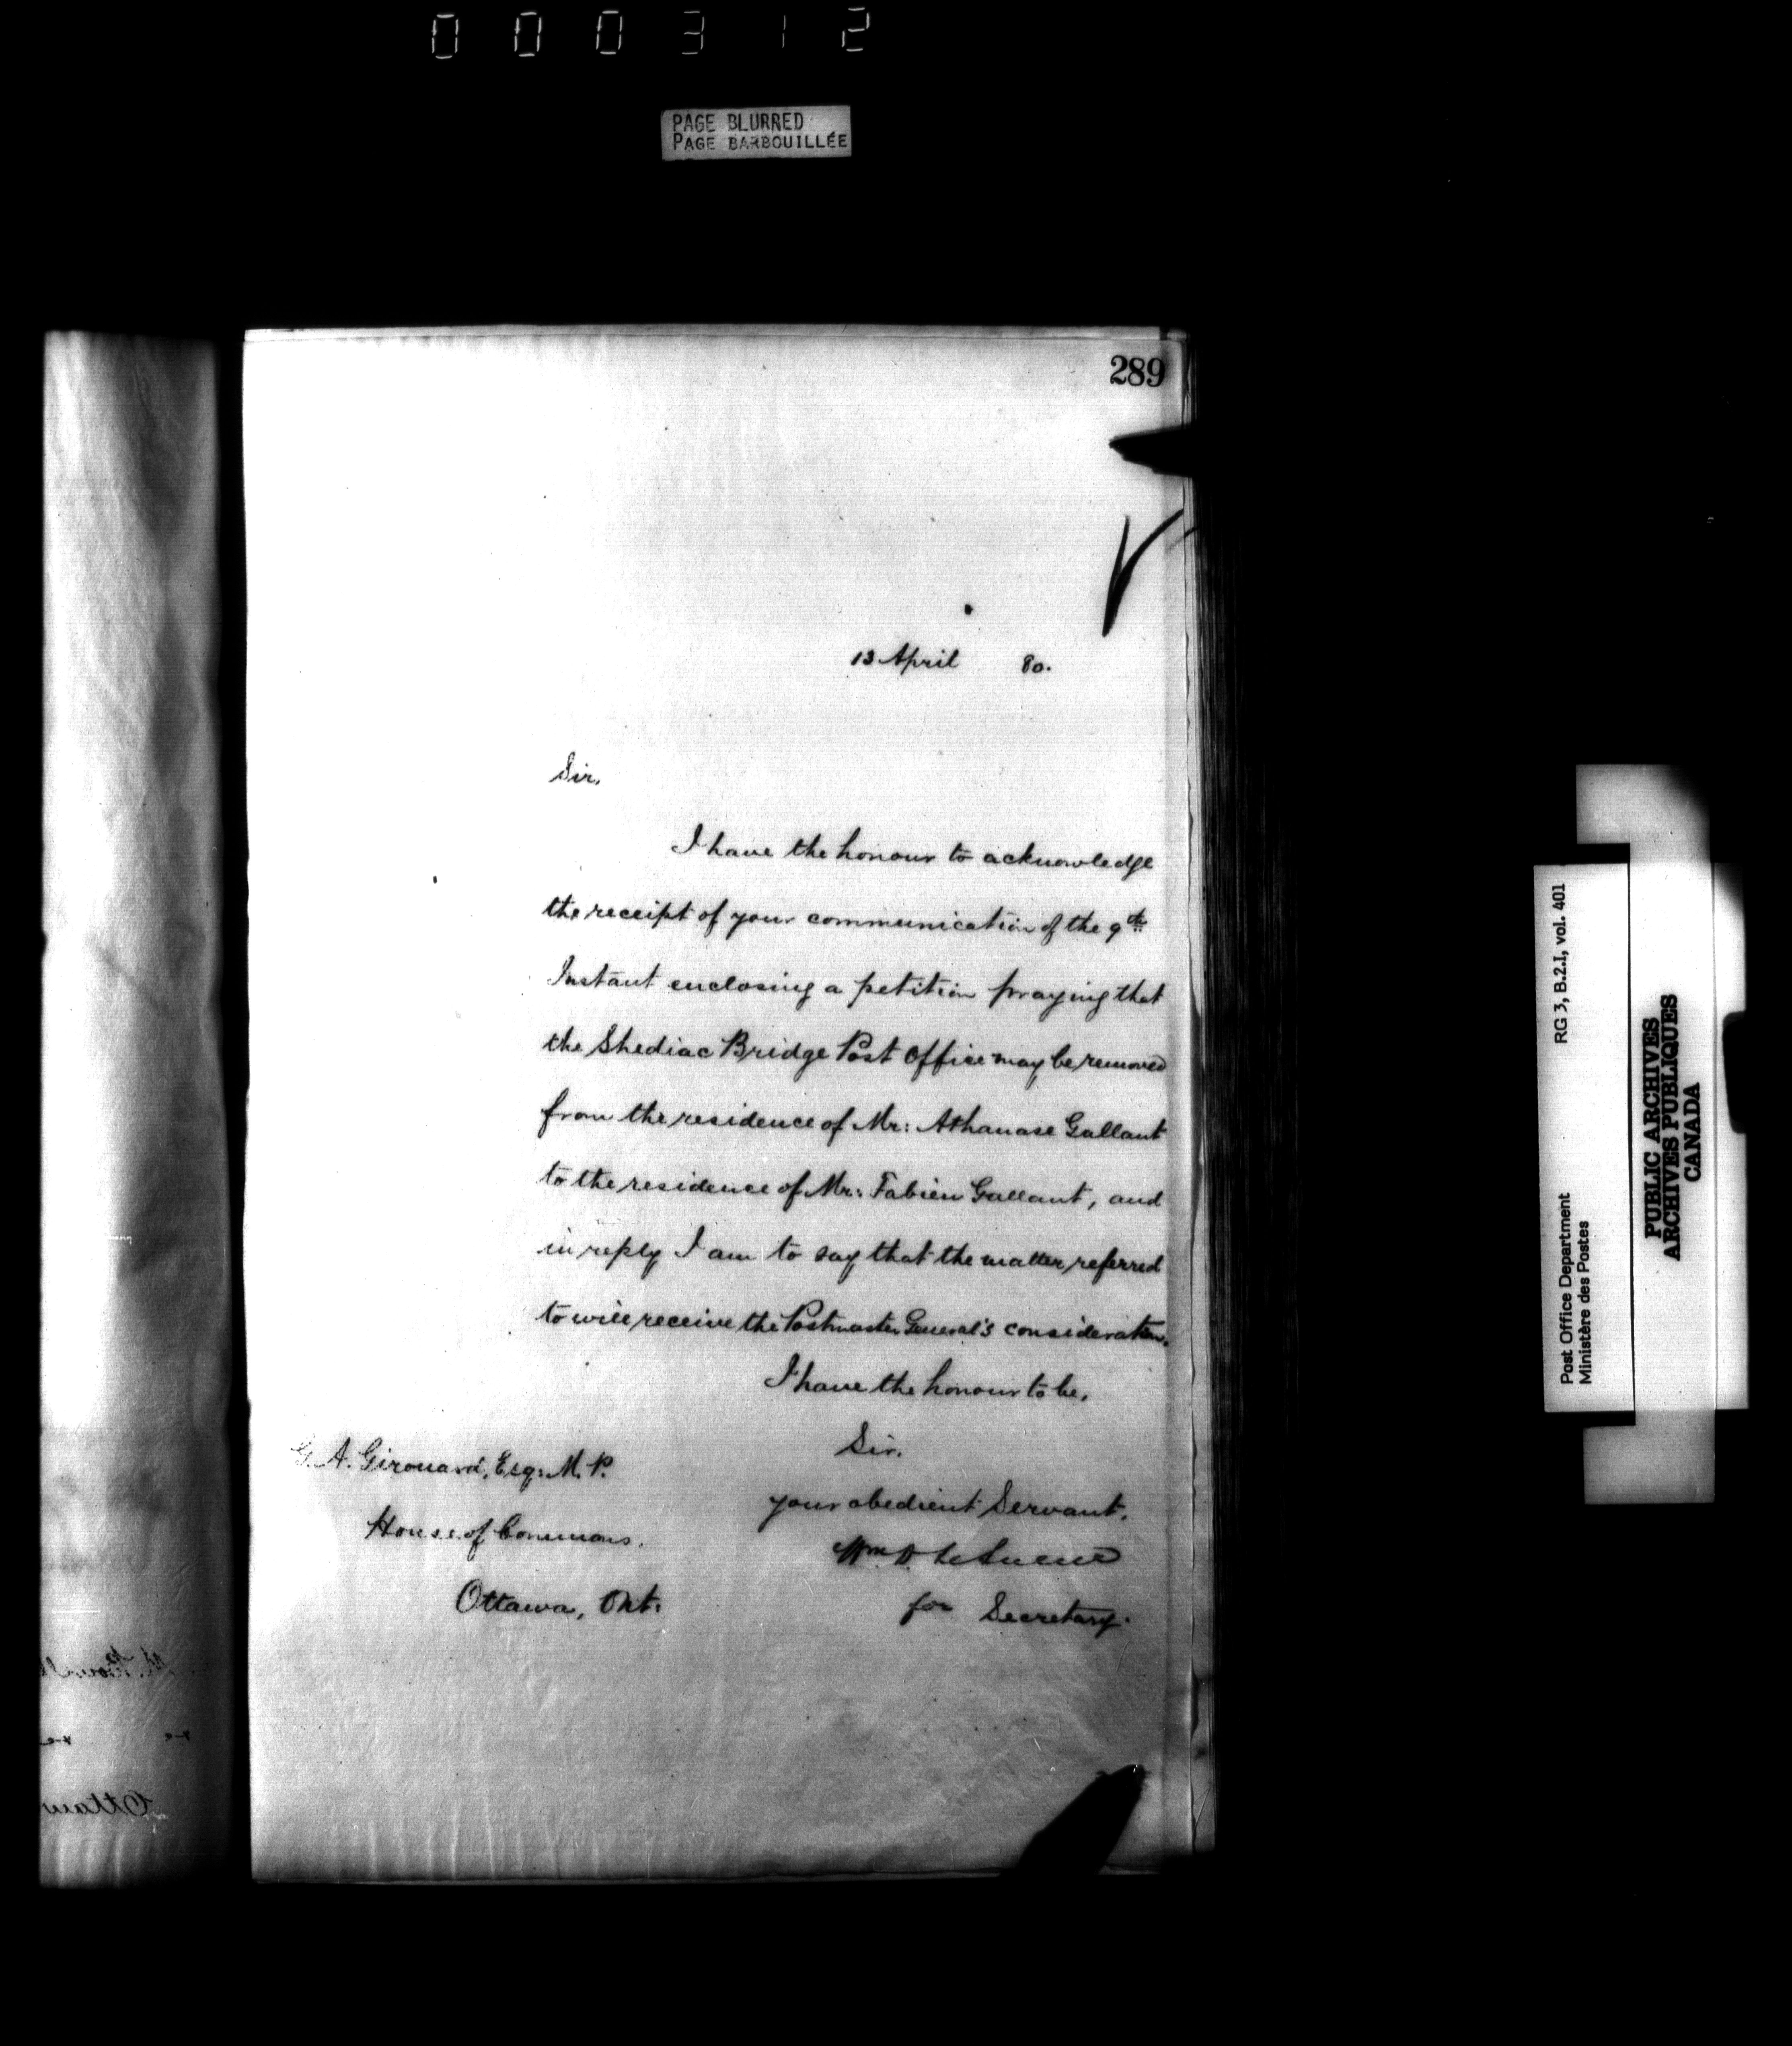 000312
PAGE BLURRED
PAGE BARBOUILLÉE
289
13 April 80.
Sir,
I have the honour to acknowledge
the receipt of your communication of the 9th
Instant enclosing a petition praying that
the Shediac Bridge Post Office may be removed
from the residence of Mr: Athanase Gallant
to the residence of Mr: Fabien Gallant, and
in reply I am to say that the matter referred
to will receive the Postmaster General's consideration.
I have the honour to be,
Sir.
your obedient Servant.
Wm D. LeSueur
for Secretary.
G. A. Girouard, Esq: M. P.
House of Commons.
Ottawa, Ont:
Ottaw
Post Office Department RG 3, B.2.I, vol. 401
Ministère des Postes
PUBLIC ARCHIVES
ARCHIVES PUBLIQUES
CANADA